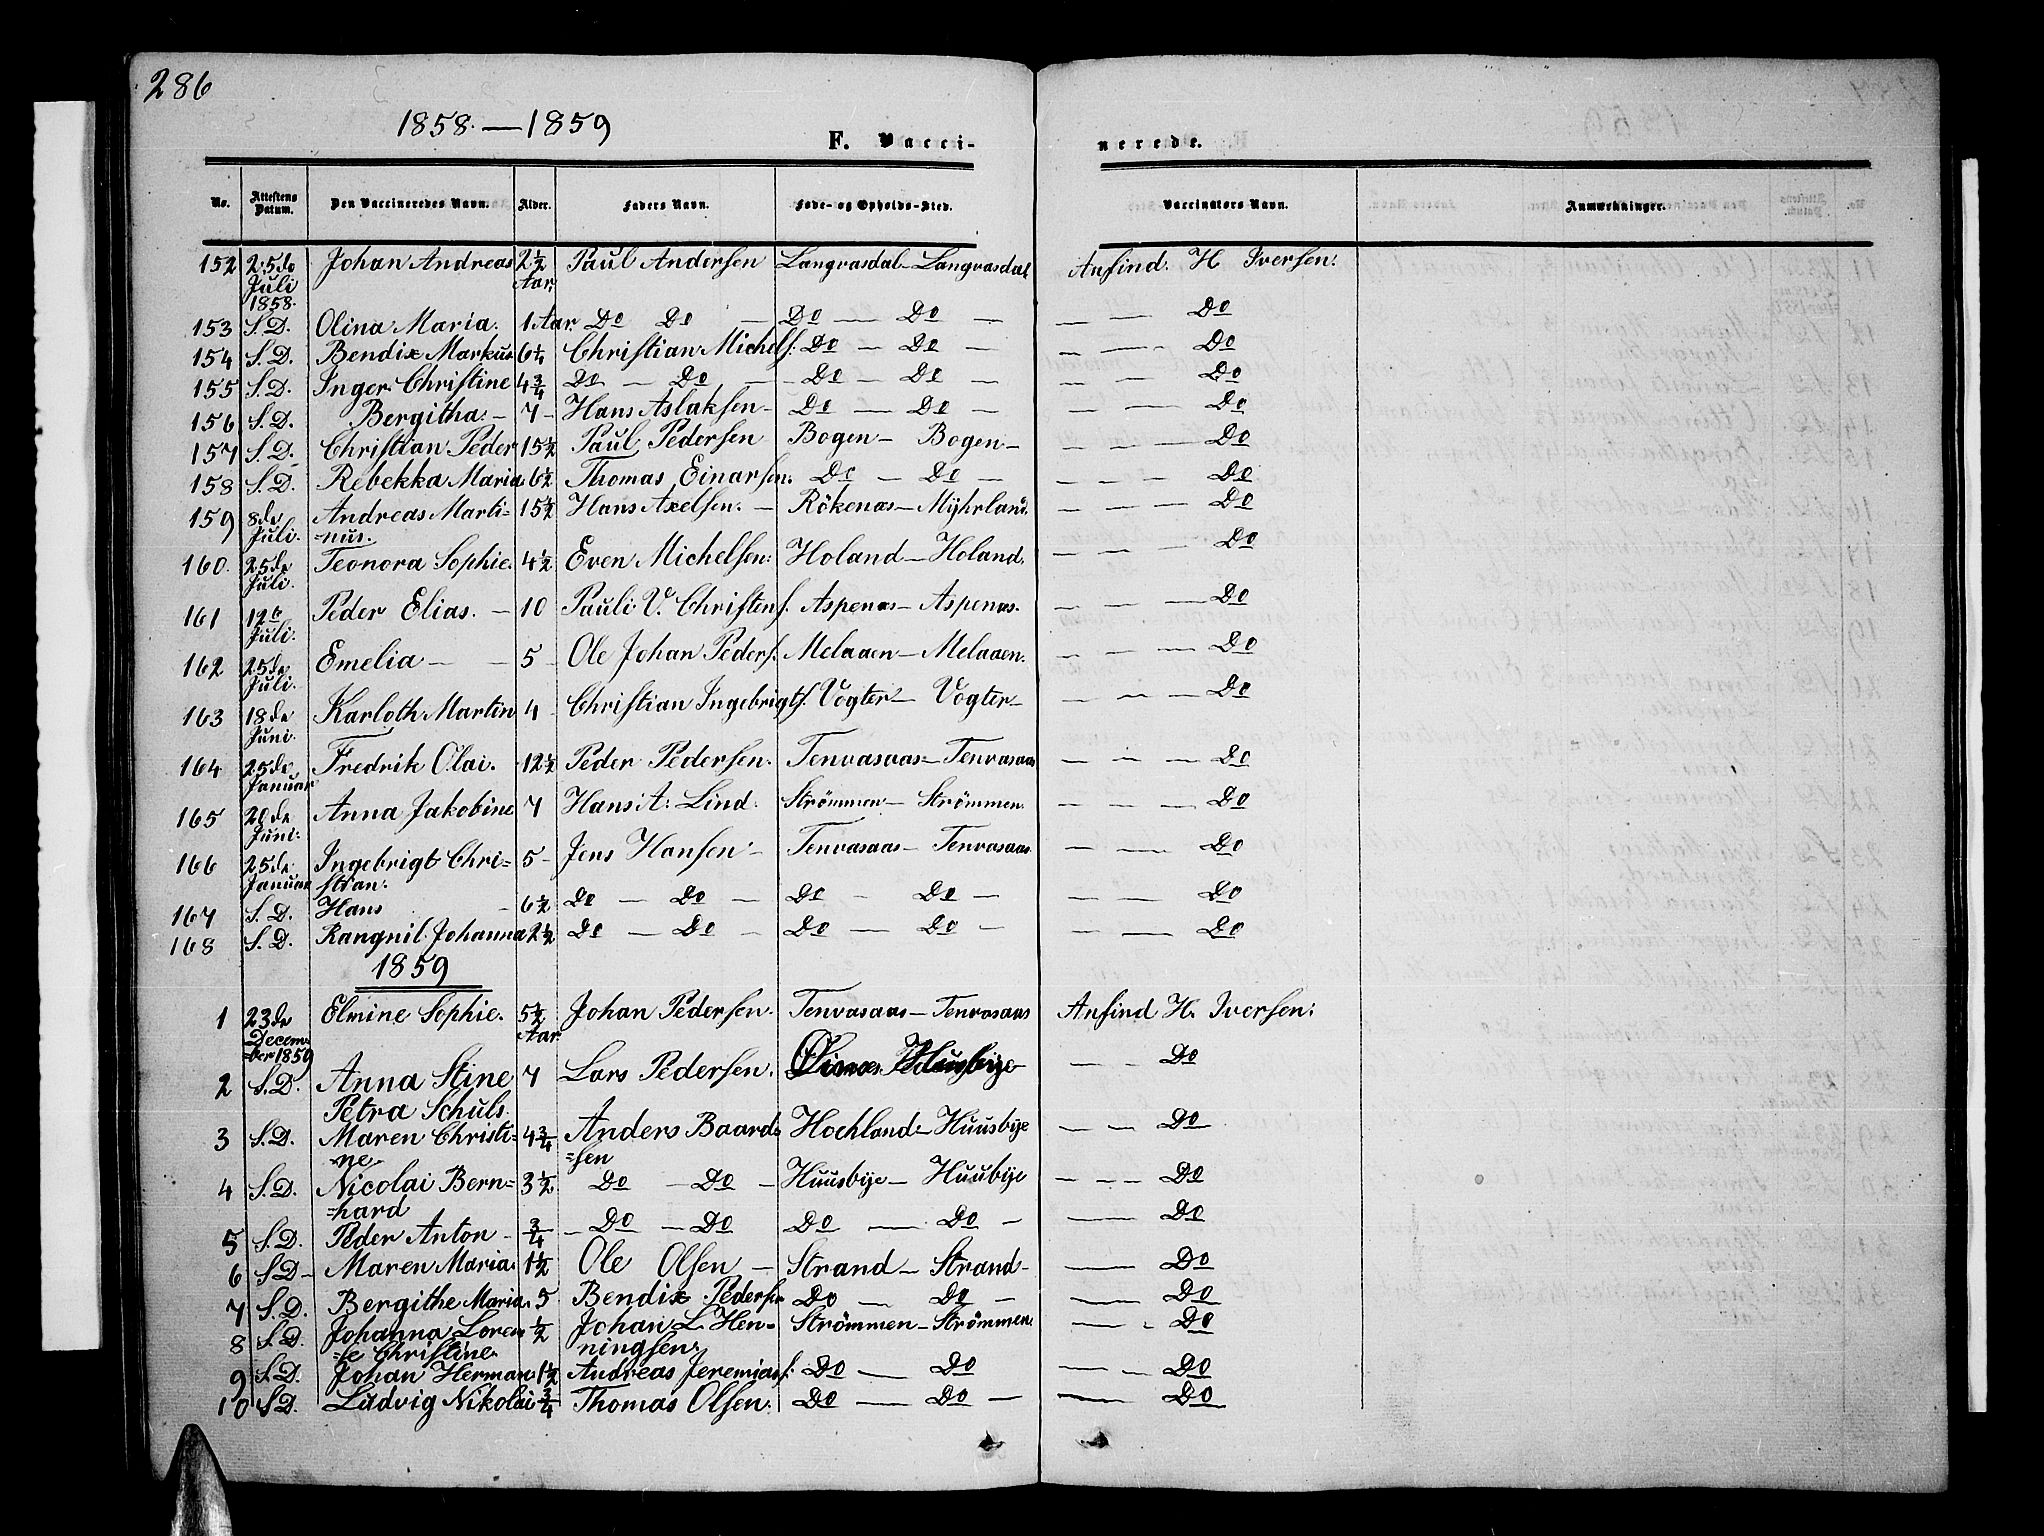 286
1858. — 1859
F. Vacci- nerede.
No. Attestens Datum. Den Vaccineredes Navn. Alder. Faders Navn. Føde- og Opholds-Sted. Vaccinators Navn. Anmærkninger.
152 25de Juli 1858. Johan Andreas 2½ Aar. Paul Andersen Langvasdal — Langvasdal Anfind. H Iversen.
153 S.D. Olina Maria. 1 Aar. Do Do — Do — Do — — — Do
154 S.D. Bendix Markus 6¼ Christian Michels. Do — Do — — — Do
155 S.D. Inger Christine 4¾ Do — Do — Do — Do — — — Do
156 S.D. Bergitha. — 7 — Hans Aslaksen — Do — Do — — — Do
157 S.D. Christian Peder 15½ Paul Pedersen Bogen — Bogen — — — Do
158 S.D. Rebekka Maria 6½ Thomas Einarsen. Do — Do — — — — Do
159 8de Juli. Andreas Marti= 15½ Hans Axelsen. — Rökenæs — Myhrland. — — — Do
=nus.
160. 25de Juli. Leonora Sophie. 4½ Even Michelsen. Holand — Holand. — — — Do
161 12te Juli. Peder Elias. — 10 Pauli V. Christens. Aspenæs — Aspenæs. — — — Do
162 25de Juli. Emelia — — 5 — Ole Johan Peders. Melaaen — Melaaen. — — — Do
163 18de Juni. Karloth Martin 4 — Christian Ingebrigts. Vogter — Vogter — — — — Do
164 25de Januar Fredrik Olai. 12½ Peder Pedersen. Tenvasaas — Tenvasaas — — — Do
165 20de Juni. Anna Jakobine 7 Hans A. Lind. Strömmen — Strömmen. — — — Do
166 25de Januar Ingebrigt Chri= 5 — Jens Hansen — Tenvasaas — Tenvasaas — — Do
stian.
167 S.D. Hans — 6½ Do — Do — Do — Do — — — — Do
168 S.D. Rangnil. Johanna 2½ Do — Do — Do — Do — — — — Do
1859
1 23de December 1859 Elmine Sophie. 5½ Aar Johan Pedersen. Tenvasaas — Tenvasaas Anfind H. Iversen.
2 S.D. Anna Stine 7 Lars Pedersen. Huusbye — — — Do
Petra Schuls.
3 S.D. Maren Christi= 4¾ Anders Baards Hochland — Huusbye — — Do
ne =sen
4 S.D. Nicolai Bern= 3½ Do — Do — Huusbye — Huubye — — — Do
=hard
5 S.D. Peder Anton — ¾ — Do — Do Do — Do — — — Do
6 S.D — Maren Maria. 1½ Ole Olsen — Strand — Strand — — — Do
7 S.D. Bergithe Maria. 5 Bendix Pedersen Do — Do — — — Do
8 S.D. Johanna Loren ½ Johan L. Hen= Strömmen — Strömmen. — — Do
=se Christine. ningsen.
9 S.D. Johan Herman 1½ Andreas Jeremias. Do — Do — — Do
10 S.D. Ludvig Nikolai ¾ Thomas Olsen. Do — Do — — — Do